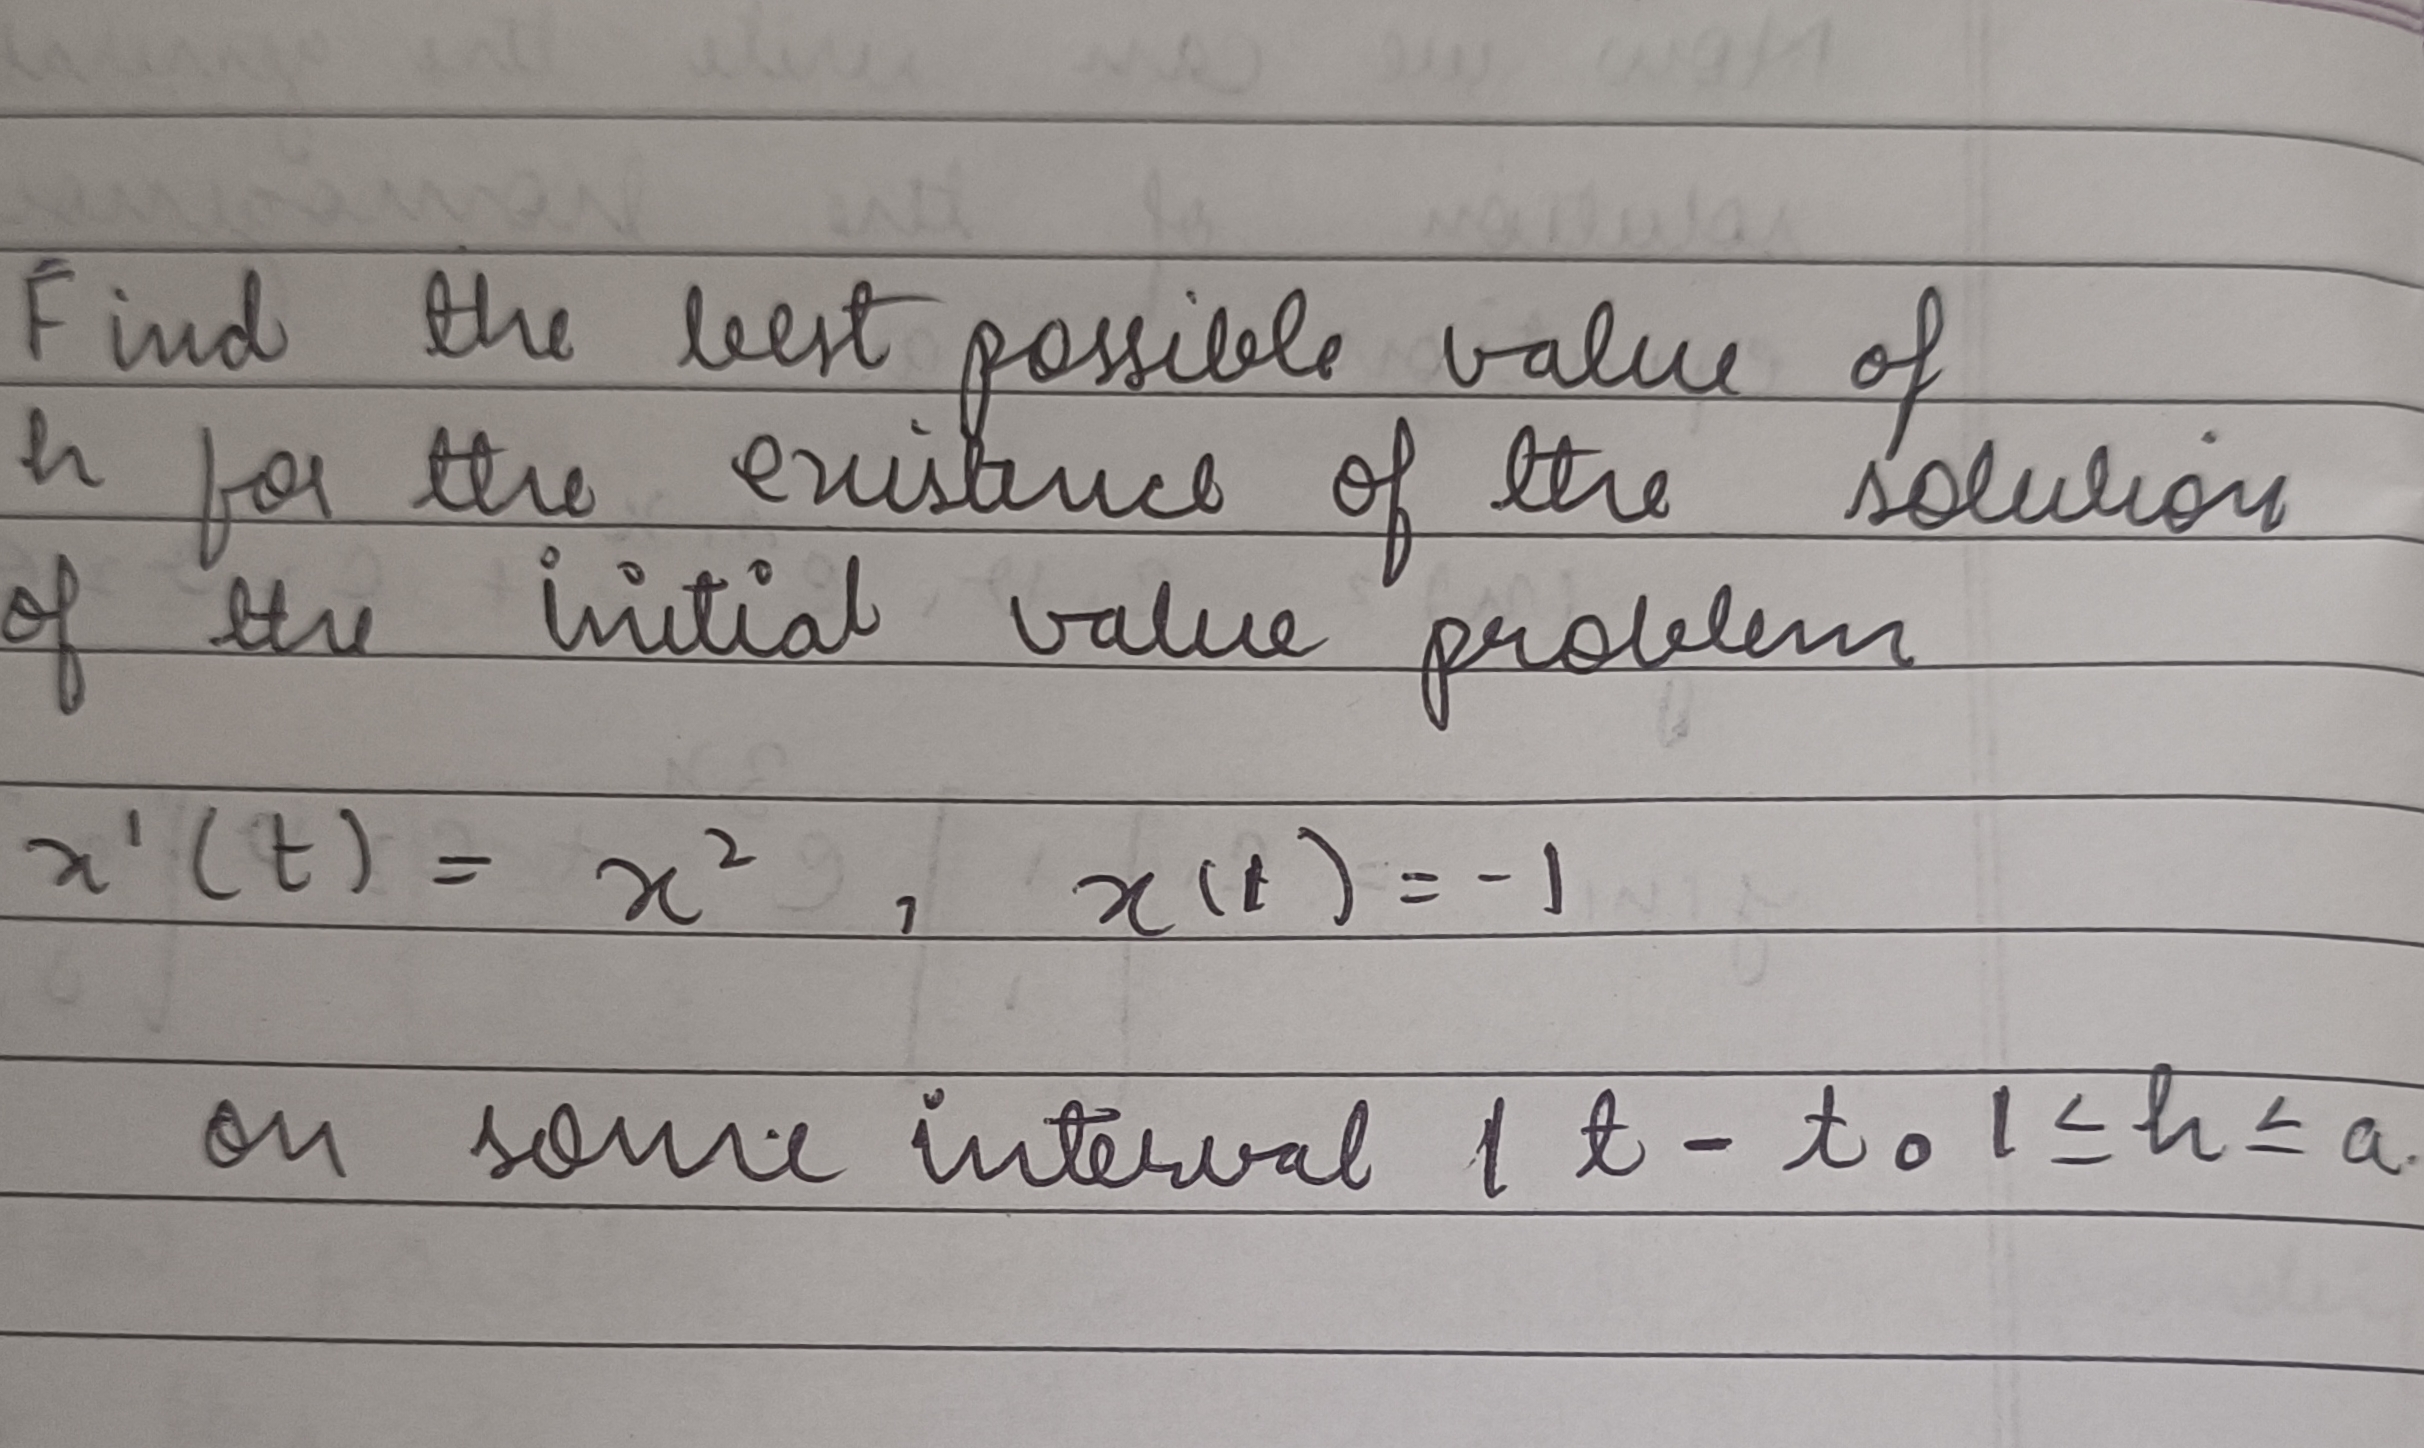 Find the best possible value of
h for the existence of the solution
of the initial value problem
x'(t) = x², x(1) = -1
on some interval |t - t₀| ≤ h ≤ a.